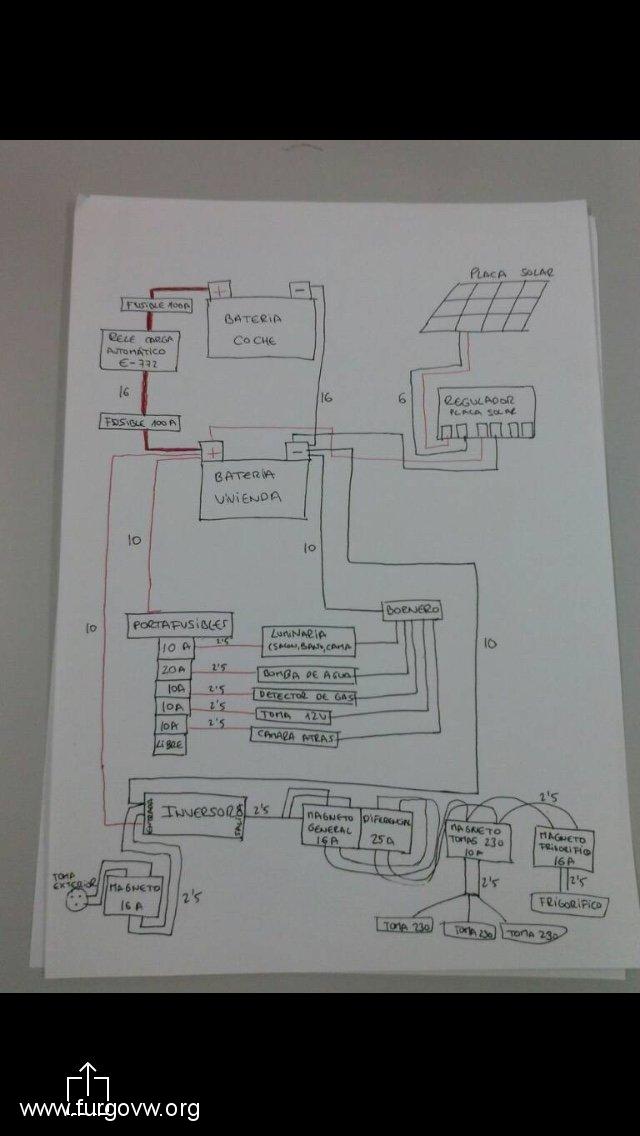 PLACA SOLAR
FUSIBLE 100A
+
-
BATERIA
COCHE
RELE CARGA
AUTOMÁTICO
E-772
16
16
6
REGULADOR
PLACA SOLAR
FUSIBLE 100A
+
-
BATERIA
VIVIENDA
10
10
10
10
BORNERO
PORTAFUSIBLES
10 A
2'5
LUMINARIA
(SALON, BAÑO, CAMA
20A
2'5
BOMBA DE AGUA
10A
2'5
DETECTOR DE GAS
10A
2'5
TOMA 12V
10A
2'5
CAMARA ATRAS
LIBRE
ENTRADA
INVERSOR
SALIDA
2'5
MAGNETO
GENERAL
16A
DIFERENCIAL
25A
MAGNETO
TOMAS 230
10A
2'5
MAGNETO
FRIGORIFICO
16A
TOMA
EXTERIOR
MAGNETO
16A
2'5
2'5
2'5
FRIGORIFICO
TOMA 230
TOMA 230
TOMA 230
www.furgovw.org